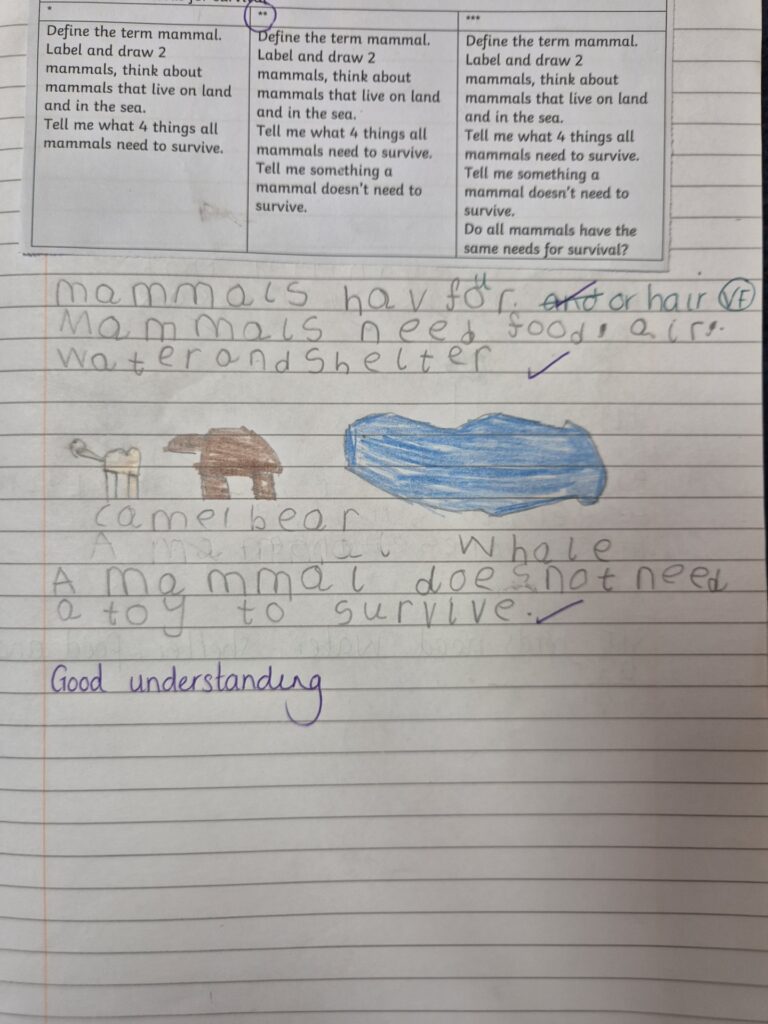 for survival
*
Define the term mammal.
Label and draw 2
mammals, think about
mammals that live on land
and in the sea.
Tell me what 4 things all
mammals need to survive.
**
Define the term mammal.
Label and draw 2
mammals, think about
mammals that live on land
and in the sea.
Tell me what 4 things all
mammals need to survive.
Tell me something a
mammal doesn't need to
survive.
***
Define the term mammal.
Label and draw 2
mammals, think about
mammals that live on land
and in the sea.
Tell me what 4 things all
mammals need to survive.
Tell me something a
mammal doesn't need to
survive.
Do all mammals have the
same needs for survival?
mammals hav fur. and or hair VF
Mammals need food, air,
water and shelter
camel bear
A mammal whale
A mammal does not need
a toy to survive.
Good understanding